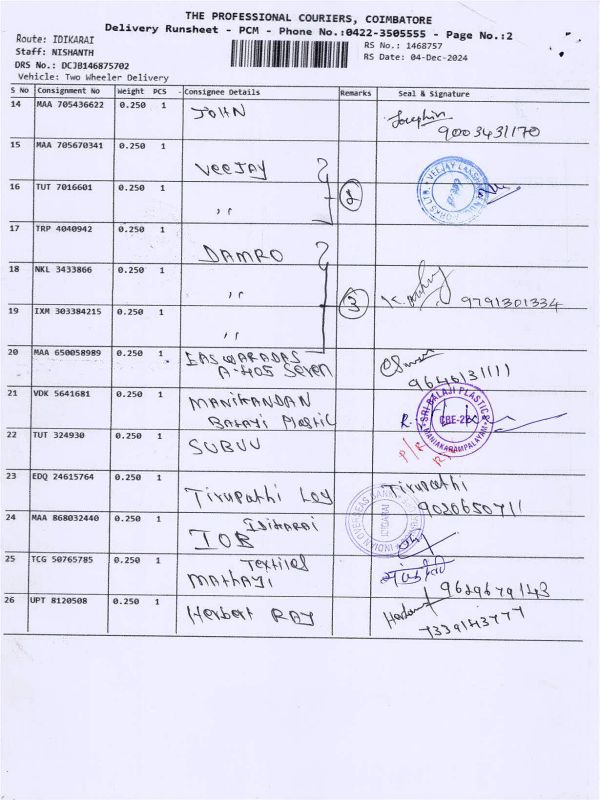 THE PROFESSIONAL COURIERS, COIMBATORE
Delivery Runsheet - PCM - Phone No.:0422-3505555 - Page No.:2
Route: IDIKARAI
Staff: NISHANTH
DRS No.: DCJB146875702
Vehicle: Two Wheeler Delivery
RS No.: 1468757
RS Date: 04-Dec-2024
S No Consignment No Weight PCS - Consignee Details Remarks Seal & Signature
14 MAA 705436622 0.250 1 JOHN Josephin
9003431170
15 MAA 705670341 0.250 1
VEEJAY
16 TUT 7016601 0.250 1 ,, 2
17 TRP 4040942 0.250 1
DAMRO
18 NKL 3433866 0.250 1 ,, 3
9791301334
19 IXM 303384215 0.250 1 ,,
20 MAA 650058989 0.250 1 EASWARADAS
A-405 Seven
9646131111
21 VDK 5641681 0.250 1 MANIKANDAN
Balayi Plastic
SRI BALAJI PLASTIC
MANIAKARAMPALAYAM
22 TUT 324930 0.250 1 SUBUU
P/R
23 EDQ 24615764 0.250 1 Tirupathi
Tirupathi
9020650711
24 MAA 868032440 0.250 1 Idikarai
IOB
INDIAN OVERSEAS BANK
IDIKARAI
25 TCG 50765785 0.250 1 Textiles
MATHAYI
9629679143
26 UPT 8120508 0.250 1 Herbert RAY
7339143777